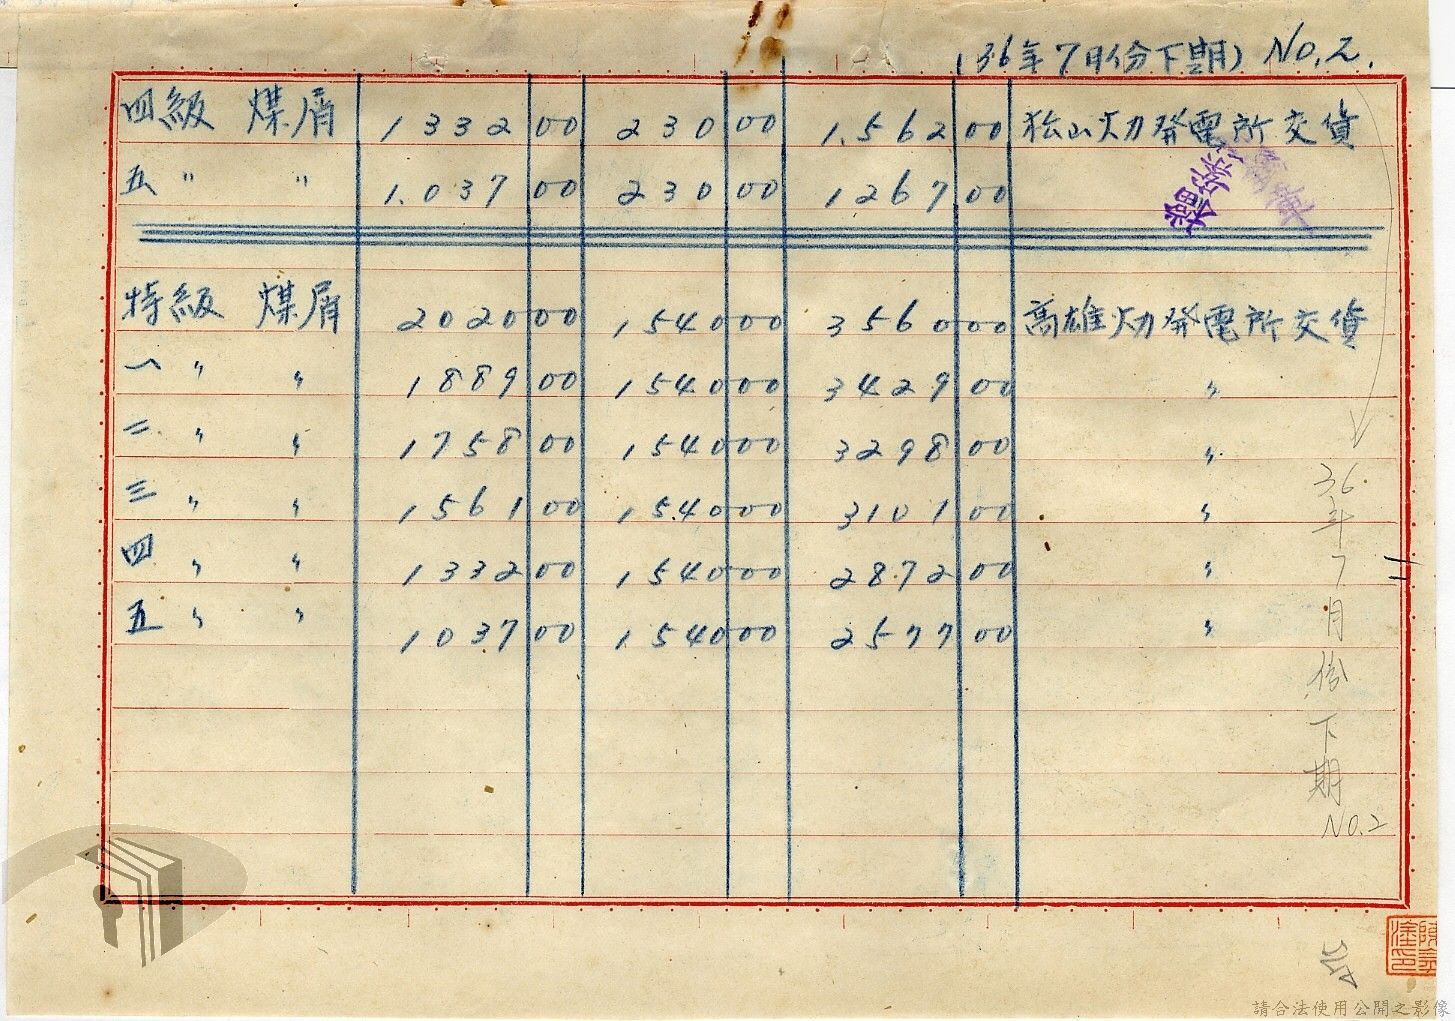 (36年7月份下期) NO.2.
四級 煤屑 1332 00 230 00 1.562 00 松山火力発電所交貨
五〃 〃 1.037 00 230 00 1267 00
特級 煤屑 2020 00 1540 00 3560 00 高雄火力発電所交貨
一〃 〃 1889 00 1540 00 3429 00 〃
二〃 〃 1758 00 1540 00 3298 00 〃
三〃 〃 1561 00 1540 00 3101 00 〃
四〃 〃 1332 00 1540 00 2872 00 〃
五〃 〃 1037 00 1540 00 2577 00 〃
36年7月份下期NO.2
請合法使用公開之影像